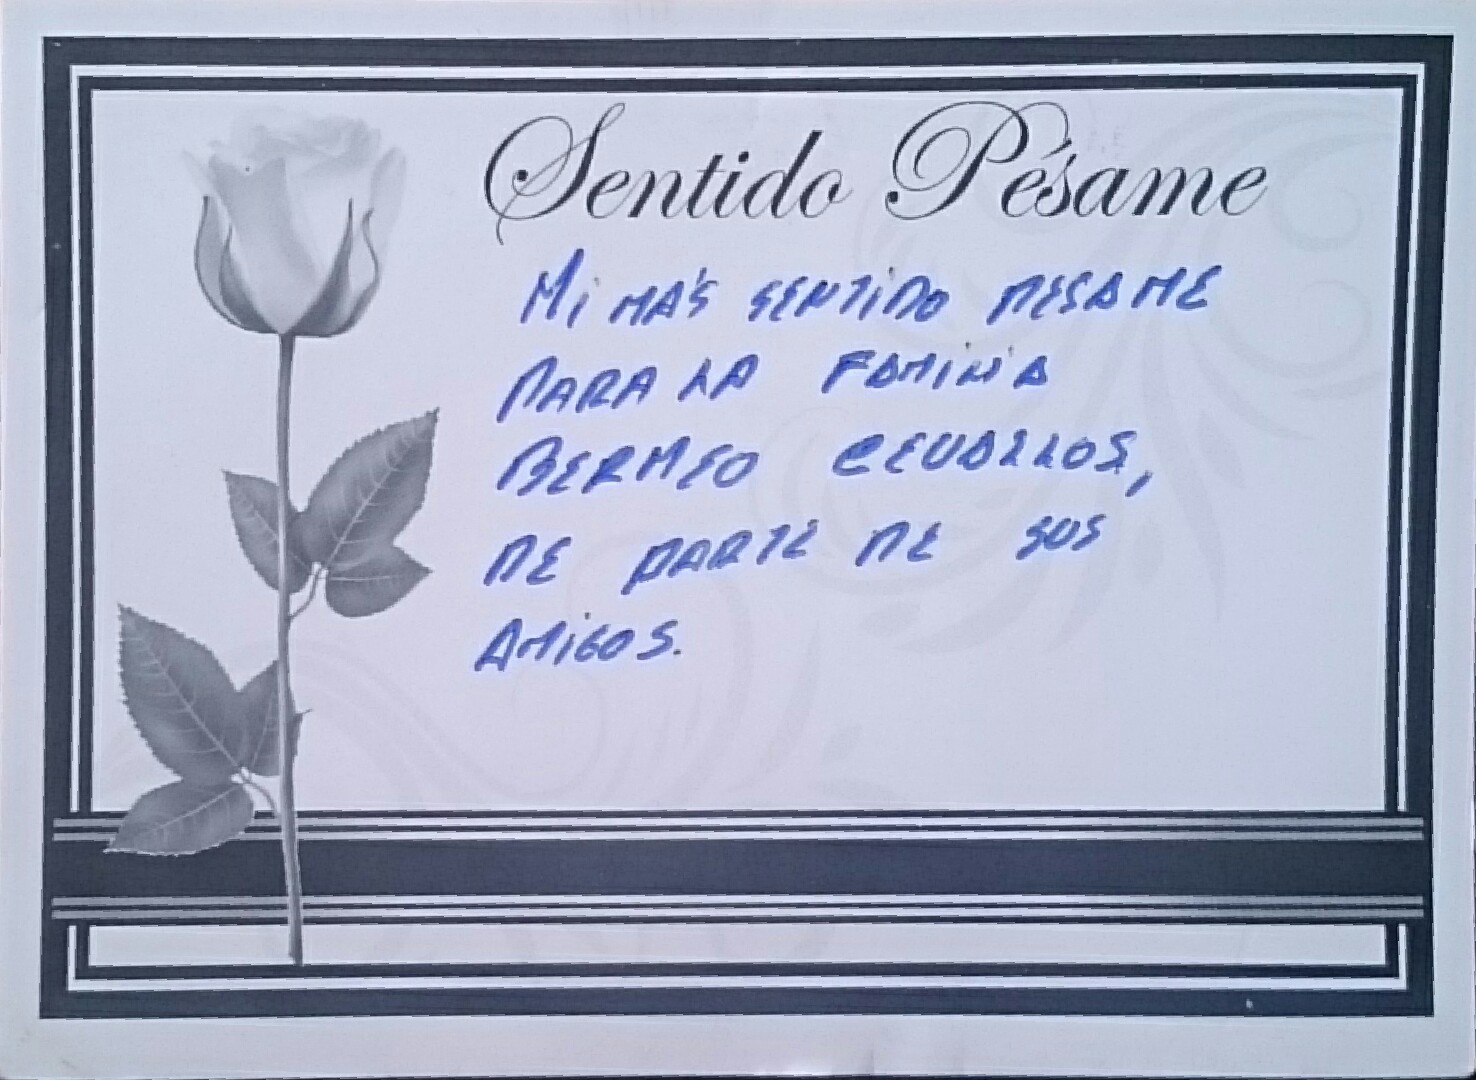 Sentido Pésame
MI MÁS SENTIDO PESAME
PARA LA FAMILIA
BERMEO CEVALLOS,
DE PARTE DE SUS
AMIGOS.